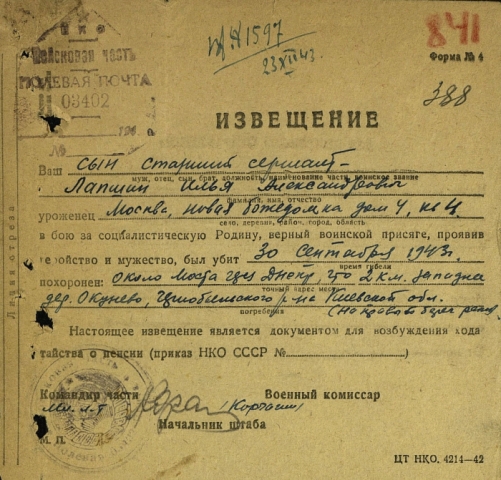 НКО
Войсковая часть
ПОЛЕВАЯ ПОЧТА
03402
№
№ 1597
23/XII 43
841
Форма № 4
388
ИЗВЕЩЕНИЕ
Ваш сын старший сержант-
муж, отец, сын, брат, должность, наименование части, воинское звание
Лапшин Илья Александрович
фамилия, имя, отчество
уроженец Москва, новая божедомка дом 4, кв 4
село, деревня, район, город, область
в бою за социалистическую Родину, верный воинской присяге, проявив
геройство и мужество, был убит 30 сентября 1943 г.
время гибели
похоронен: около моста через Днепр, что 2 км. западнее
точный адрес места
дер. Окунево, р-на Киевской обл.
погребения
(на правом берегу реки)
Настоящее извещение является документом для возбуждения хода
тайства о пенсии (приказ НКО СССР №)
Командир части
Военный комиссар
мл. л-т
Начальник штаба
М. П.
ЦТ НКО. 4214—42
Линия отреза